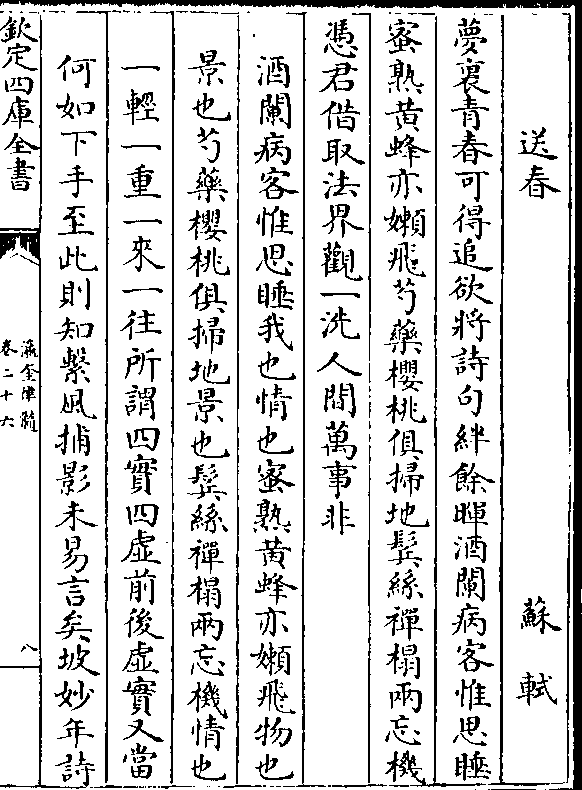 送春　蘇軾
夢裏青春可得追欲將詩句絆餘暉酒闌病客惟思睡
蜜熟黄蜂亦嬾飛芍藥櫻桃俱掃地鬂絲禪榻兩忘機
憑君借取法界觀一洗人間萬事非
酒闌病客惟思睡我也情也蜜熟黄蜂亦嬾飛物也
景也芍藥櫻桃俱掃地景也鬂絲禪榻兩忘機情也
一輕一重一來一徃所謂四實四虛前後虛實又當
何如下手至此則知繫風捕影未易言矣坡妙年詩
欽定四庫全書
瀛奎律髓
卷二十六
八